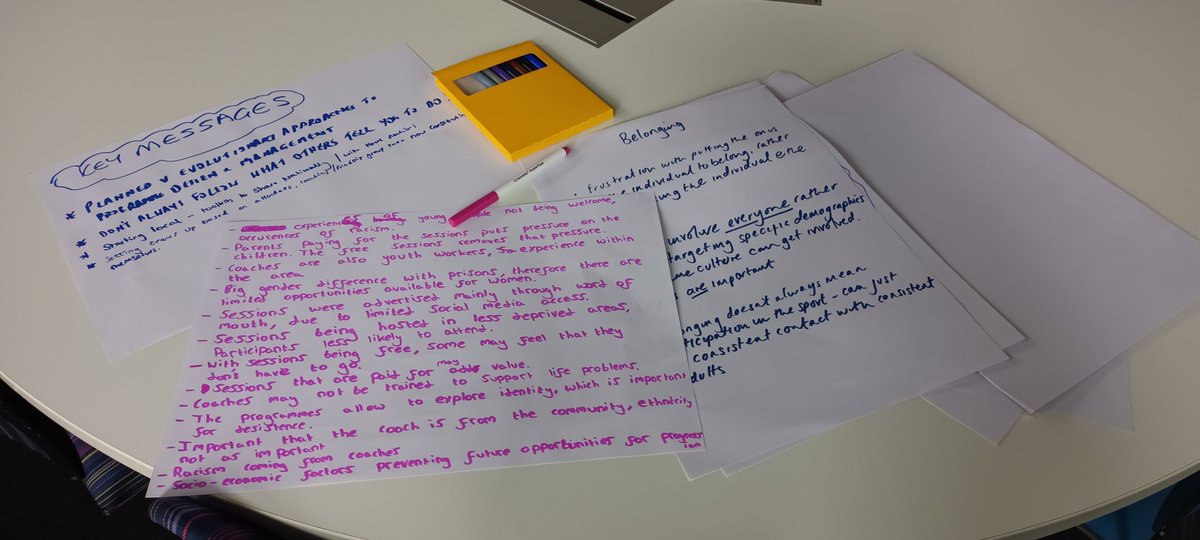 KEY MESSAGES
* PLANNED V EVOLUTIONARY APPROACHES TO
PROGRAMME DESIGN & MANAGEMENT
* DON'T ALWAYS FOLLOW WHAT OTHERS TELL YOU TO DO
* Starting local - looking to share Nationally
* Setting up based on
themselves.
Belonging
frustration with putting the onus
individual to belong, rather
the individual
involve everyone rather
targeting specific demographics
culture can get involved.
are important
doesn't always mean
in the sport - can just
consistent contact with consistent
- experiences of young not being welcome,
occurences of racism.
- Parents Paying for the sessions puts pressure on the
children. The free sessions removes that pressure.
- Coaches are also youth workers, so experience within
the area
- Big gender difference with prisons, therefore there are
limited opportunities available for women.
- Sessions were advertised mainly through word of
mouth, due to limited Social media access.
- Sessions being hosted in less deprived areas,
Participants less likely to attend.
- With sessions being free, some may feel that they
don't have to go.
- Sessions that are paid for may value.
- Coaches may not be trained to support life problems.
- The programmes allow to explore identity, which is important
for desistence.
- Important that the coach is from the community, ethnicity
not as important
- Racism coming from coaches
- Socio-economic factors preventing future opportunities for progress
ion